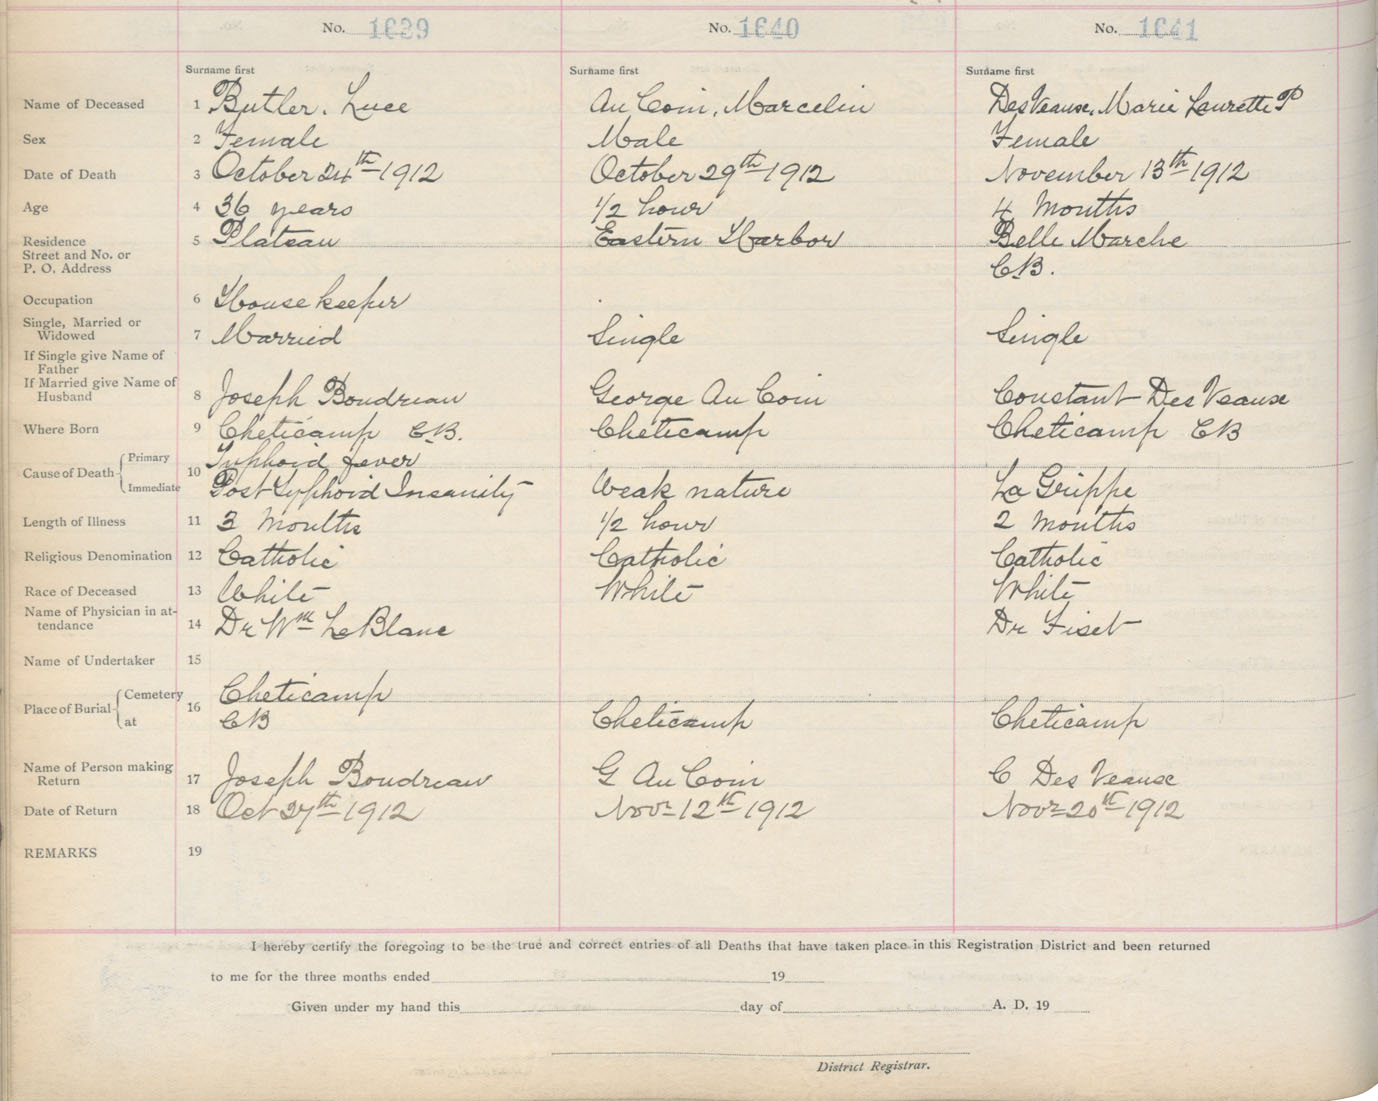 No. 1639 No. 1640 No. 1641
Surname first Surname first Surname first
Name of Deceased 1 Butler, Luce Au Coin, Marcelin DesVeaux, Marie Laurette P
Sex 2 Female Male Female
Date of Death 3 October 24th 1912 October 29th 1912 November 13th 1912
Age 4 36 years 1/2 hour 4 Months
Residence 5 Plateau Eastern Harbor Belle Marche
Street and No. or
P. O. Address C.B.
Occupation 6 Housekeeper
Single, Married or
Widowed 7 Married Single Single
If Single give Name of
Father
If Married give Name of
Husband 8 Joseph Boudreau George Au Coin Constant Des Veaux
Where Born 9 Cheticamp C.B. Cheticamp Cheticamp CB
Primary Typhoid fever
Cause of Death 10
Immediate Post Typhoid Insanity Weak nature La Grippe
Length of Illness 11 3 Months 1/2 hour 2 months
Religious Denomination 12 Catholic Catholic Catholic
Race of Deceased 13 White White White
Name of Physician in at-
tendance 14 Dr Wm LeBlanc Dr Fiset
Name of Undertaker 15
Cemetery Cheticamp
Place of Burial 16
at CB Cheticamp Cheticamp
Name of Person making
Return 17 Joseph Boudreau G Au Coin C Des Veaux
Date of Return 18 Oct 27th 1912 Novr 12th 1912 Novr 20th 1912
REMARKS 19
I hereby certify the foregoing to be the true and correct entries of all Deaths that have taken place in this Registration District and been returned
to me for the three months ended 19
Given under my hand this day of A. D. 19
District Registrar.